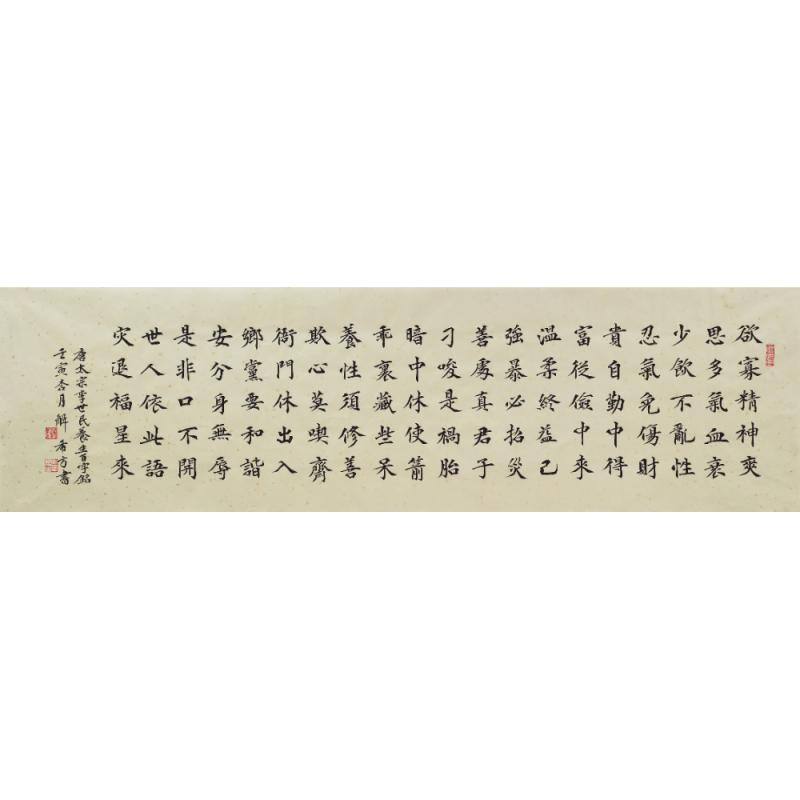 欲寡精神爽
思多氣血衰
少飲不亂性
忍氣免傷財
貴自勤中得
富從儉中來
溫柔終益己
強暴必招災
善處真君子
刁唆是禍胎
暗中休使箭
乖裏藏些呆
養性須修善
欺心莫喫齋
衙門休出入
鄉黨要和諧
安分身無辱
是非口不開
世人依此語
灾退福星來
唐太宗李世民養生百字銘
壬寅杏月 希方書